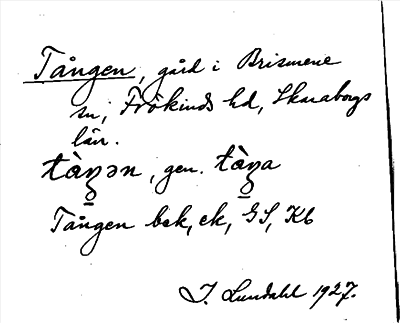 Tången, gård i Brismene
sn, Frökinds hd, Skaraborgs
län.
gen.
Tången bek, ek, GS, Kb
I. Lundahl 1927.